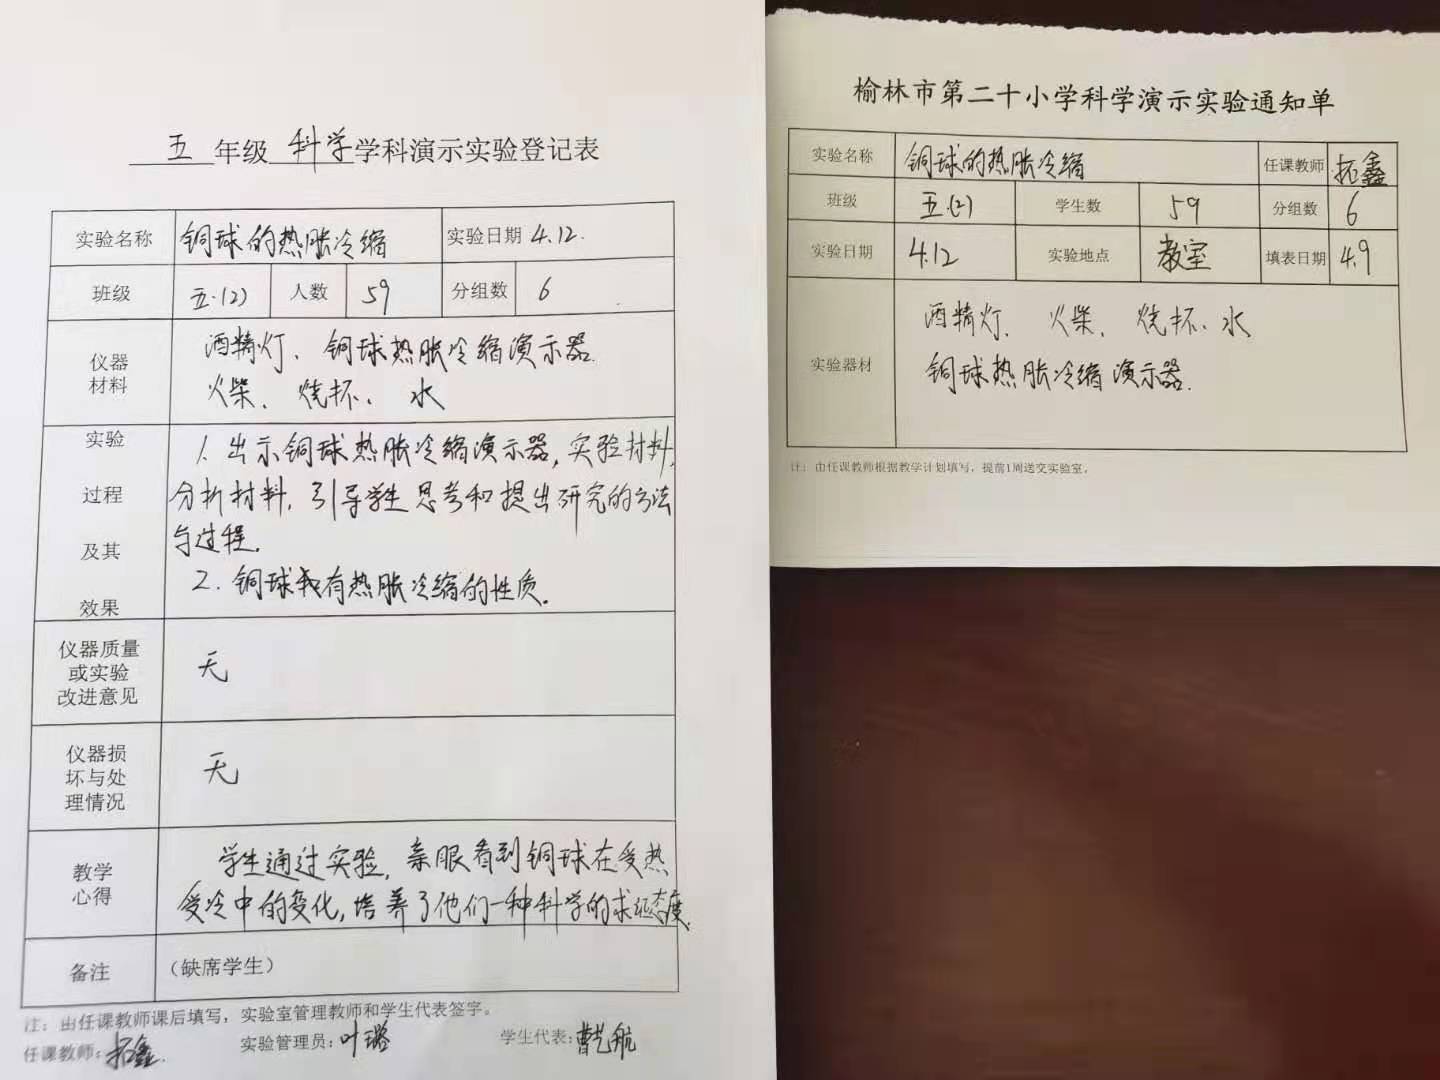 五年级 科学学科演示实验登记表
实验名称 铜球的热胀冷缩 实验日期 4.12.
班级 五.(2) 人数 59 分组数 6
仪器材料 酒精灯、铜球热胀冷缩演示器.
火柴、烧杯、水
实验过程及其效果 1. 出示铜球热胀冷缩演示器,实验材料,
分析材料,引导学生思考和提出研究的方法
与过程.
2. 铜球有热胀冷缩的性质.
仪器质量
或实验
改进意见 无
仪器损
坏与处
理情况 无
教学心得 学生通过实验,亲眼看到铜球在受热
受冷中的变化,培养了他们一种科学的求证态度.
备注 (缺席学生)
注:由任课教师课后填写,实验室管理教师和学生代表签字。
任课教师:拓鑫. 实验管理员:叶璐 学生代表:曹艺航
榆林市第二十小学科学演示实验通知单
实验名称 铜球的热胀冷缩 任课教师 拓鑫
班级 五.(2) 学生数 59 分组数 6
实验日期 4.12 实验地点 教室 填表日期 4.9
实验器材 酒精灯、火柴、烧杯、水
铜球热胀冷缩演示器.
注:由任课教师根据教学计划填写,提前1周送交实验室。